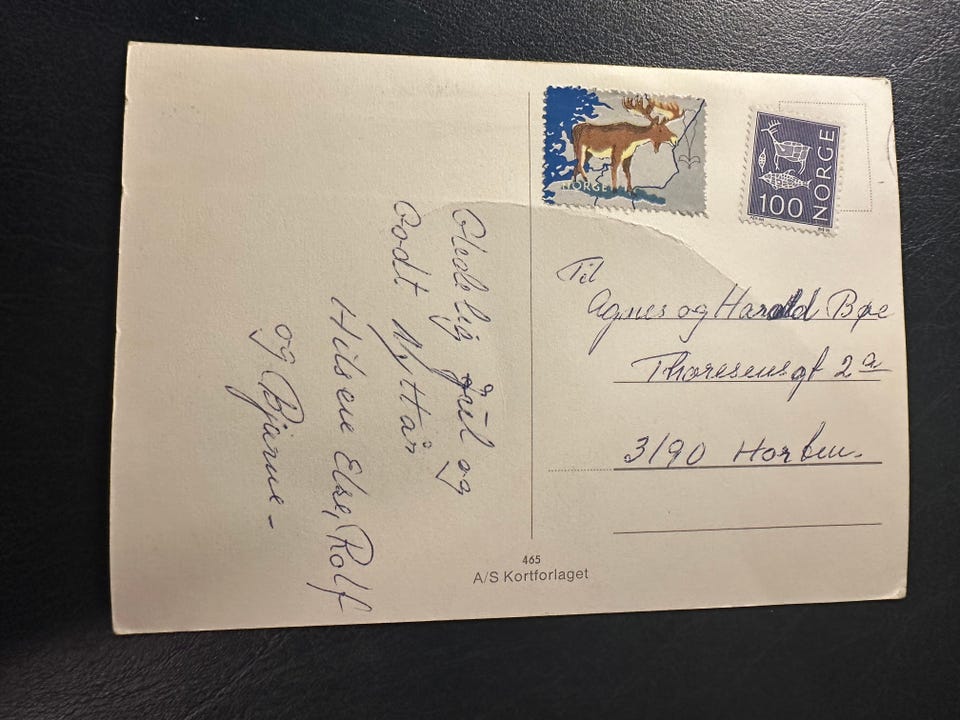 Gledelig Jul og
Godt Nyttår
Hilsen Else, Rolf
og Bjarne -
NORGE
NORGE
100
Til
Agnes og Harald Bøe
Thoresensgt 2a
3190 Horten.
465
A/S Kortforlaget